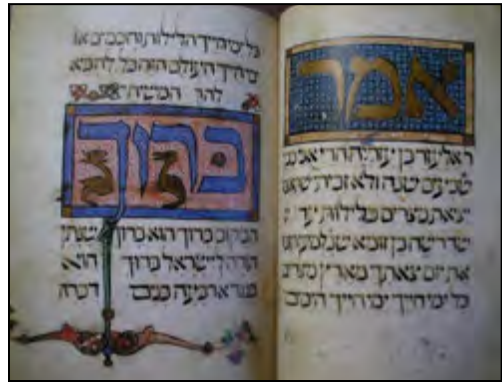 אמר
אלעזר בן עזריה הרי אני
שבעים שנה ולא זכיתי
יציאת מצרים בלילות עד
שדרשה בן זומא
את יום צאתך מארץ
כל ימי חייך ימי חייך הימים
כל ימי חייך הלילות וחכמים או
ימי חייך העולם הזה כל
המשיח
ברוך
המקום ברוך הוא ברוך שנתן
תורה לישראל ברוך הוא
כנגד ארבעה בנים דברה